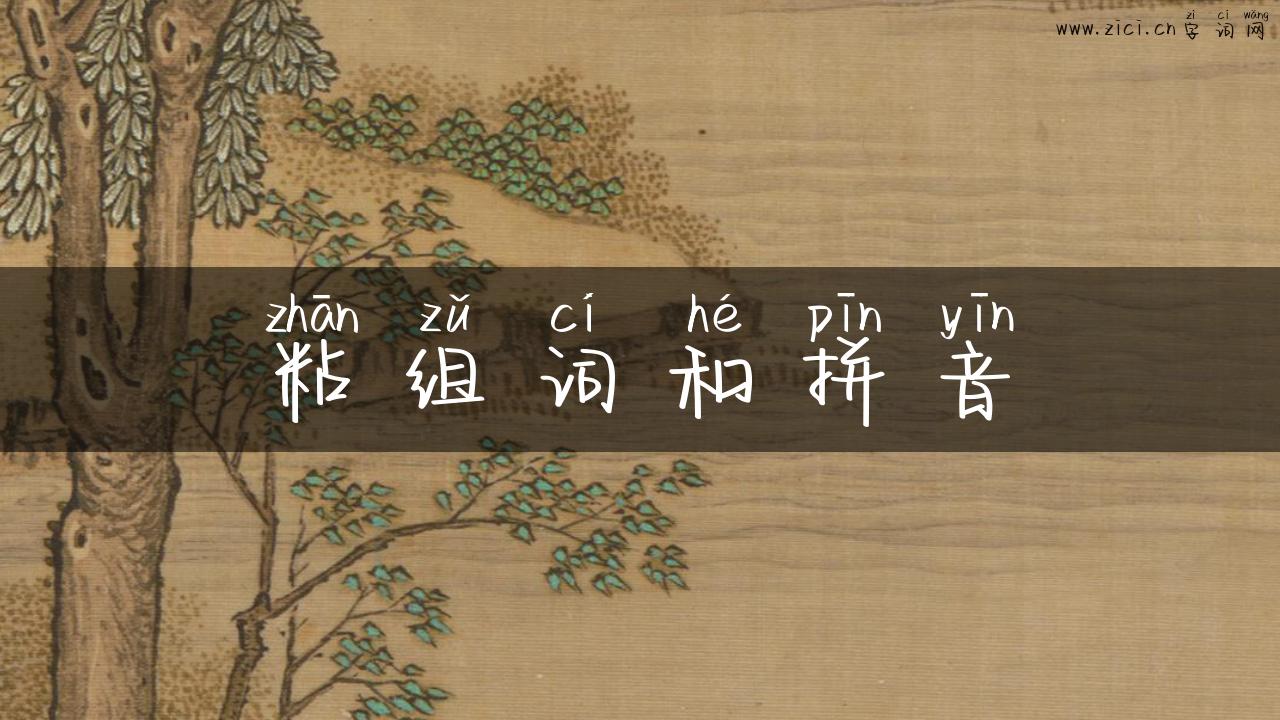 zì cí wǎng
www.zici.cn 字 词 网
zhān zǔ cí hé pīn yīn
粘 组 词 和 拼 音